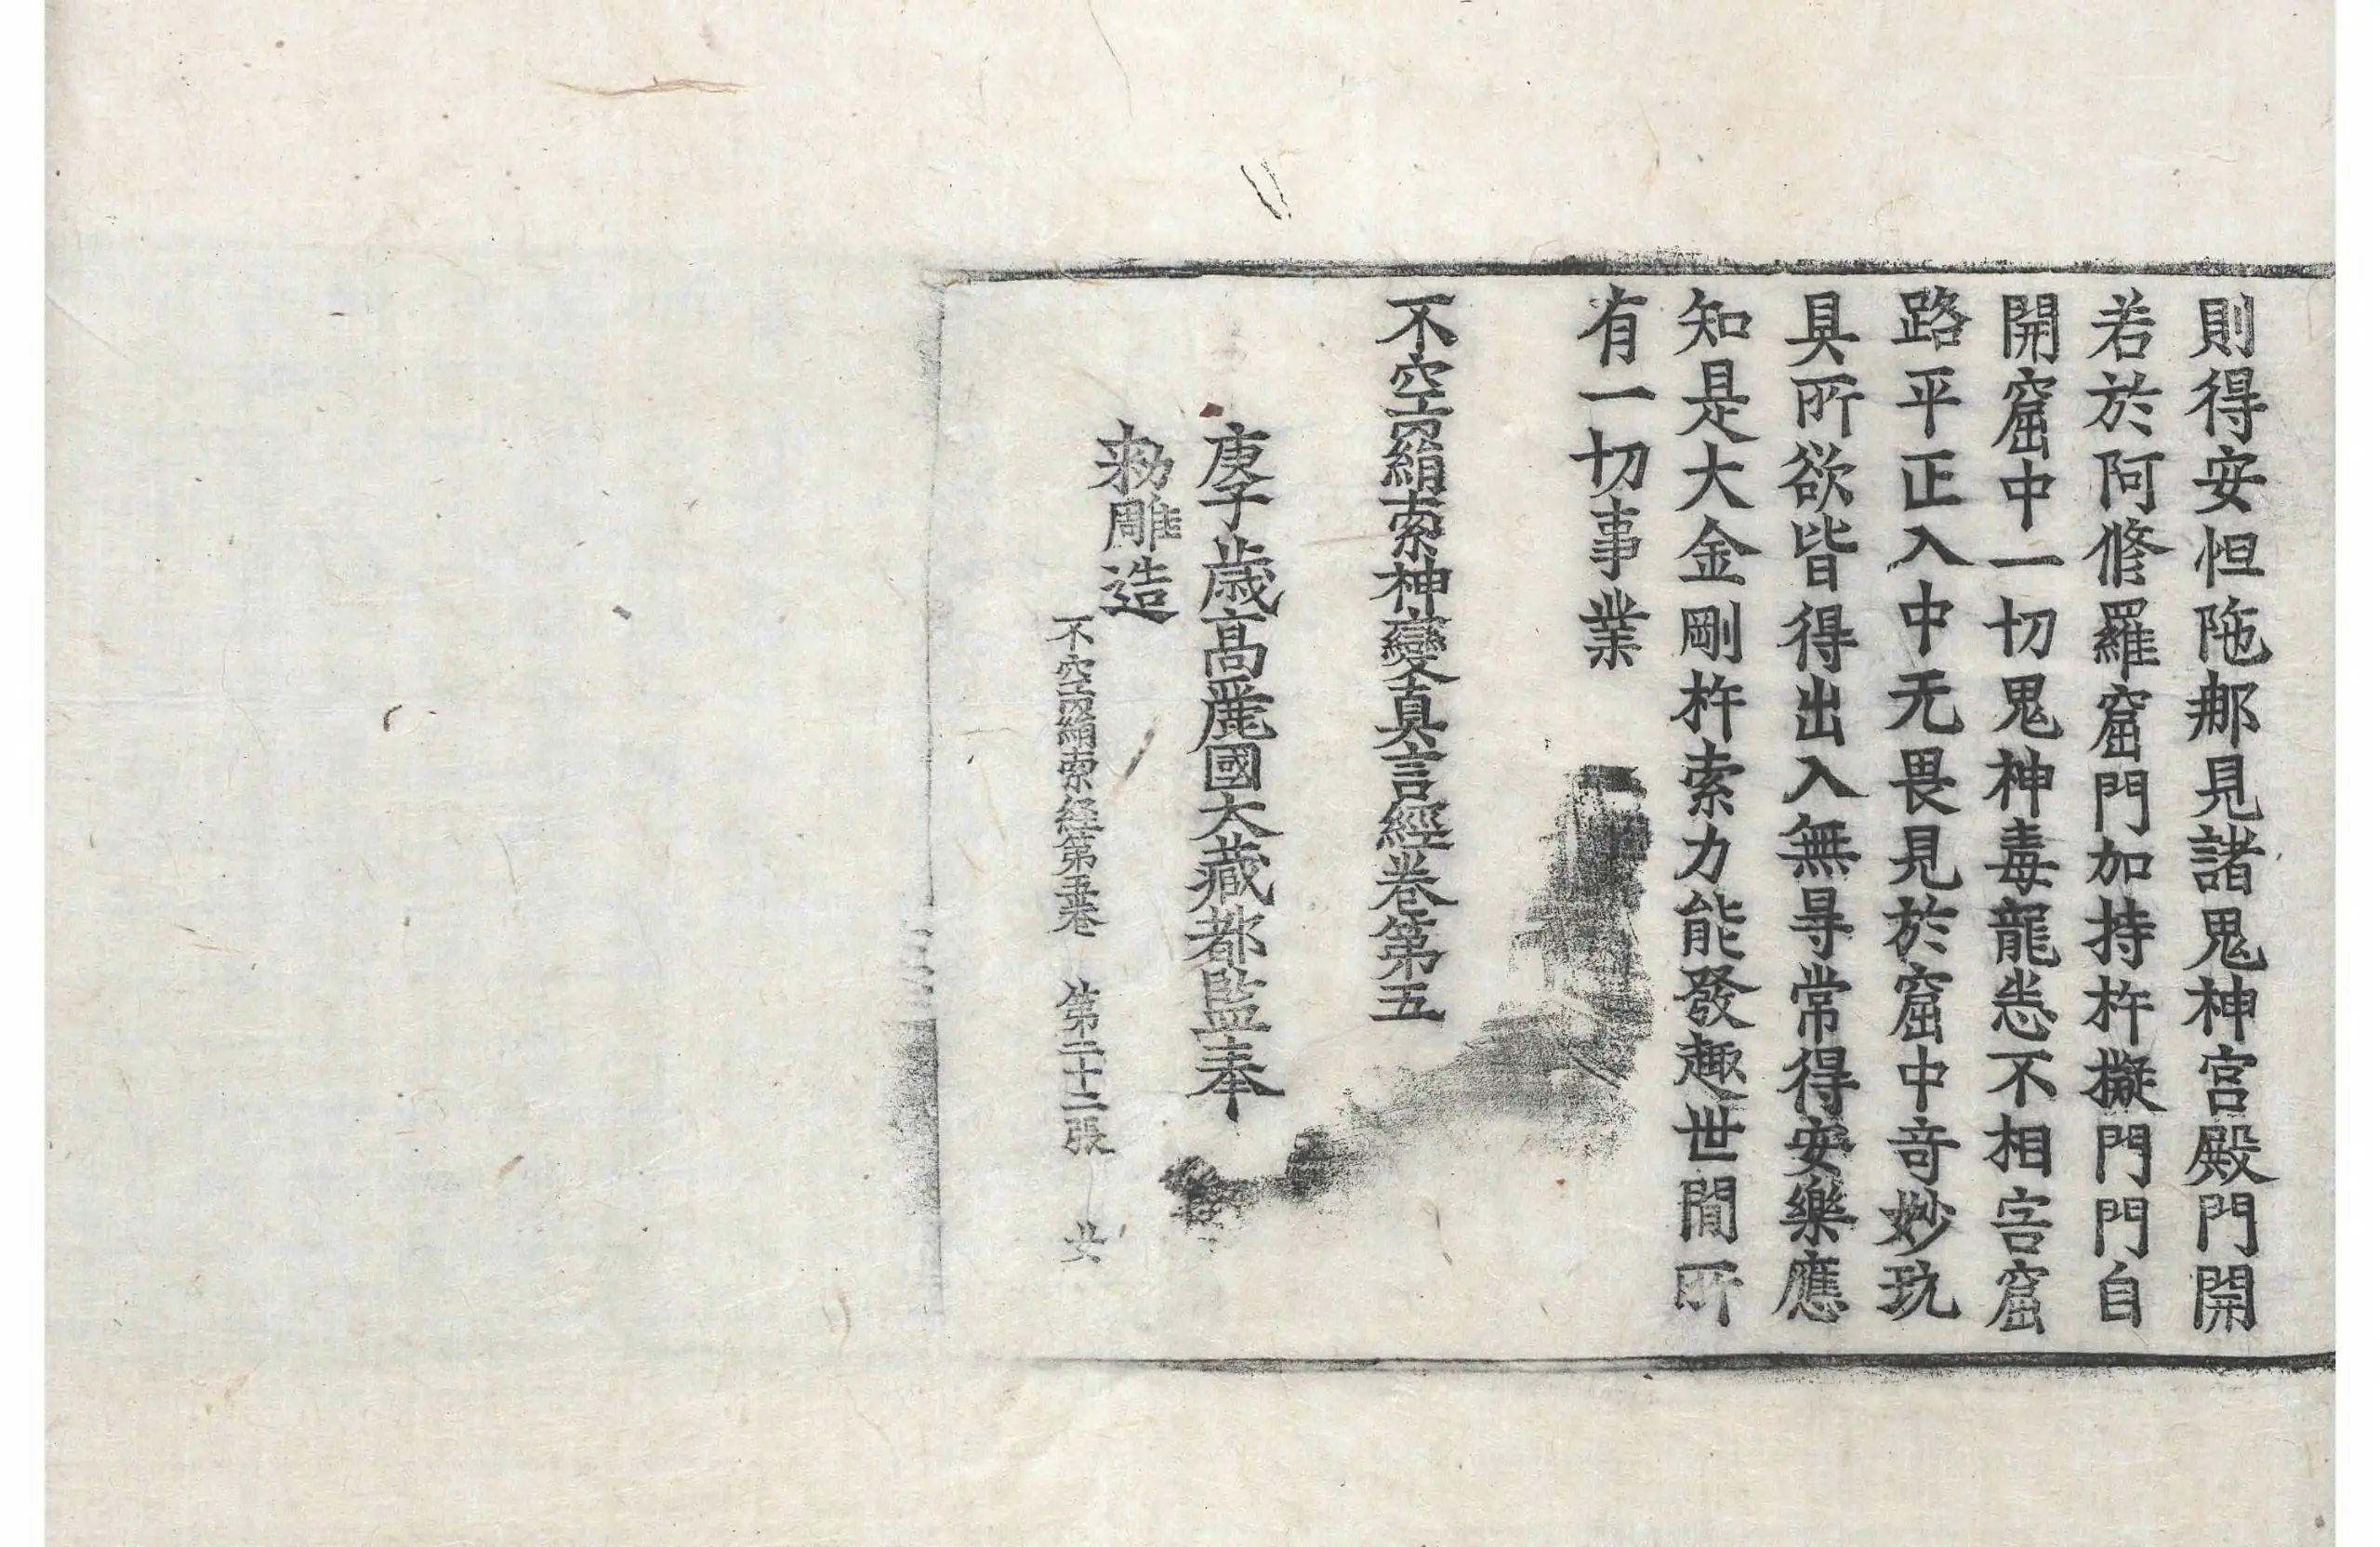 則得安怛陁𨙻見諸鬼神宮殿門開
若於阿修羅窟門加持杵擬門門自
開窟中一切鬼神毒龍悉不相害窟
路平正入中无畏見於窟中竒妙玩
具所欲皆得出入無㝵常得安樂應
知是大金剛杵索力能發趣世閒所
有一切事業
不空羂索神變真言經卷第五
庚子歲高麗國大藏都監奉
勑雕造
不空羂索經第五卷 第二十二張